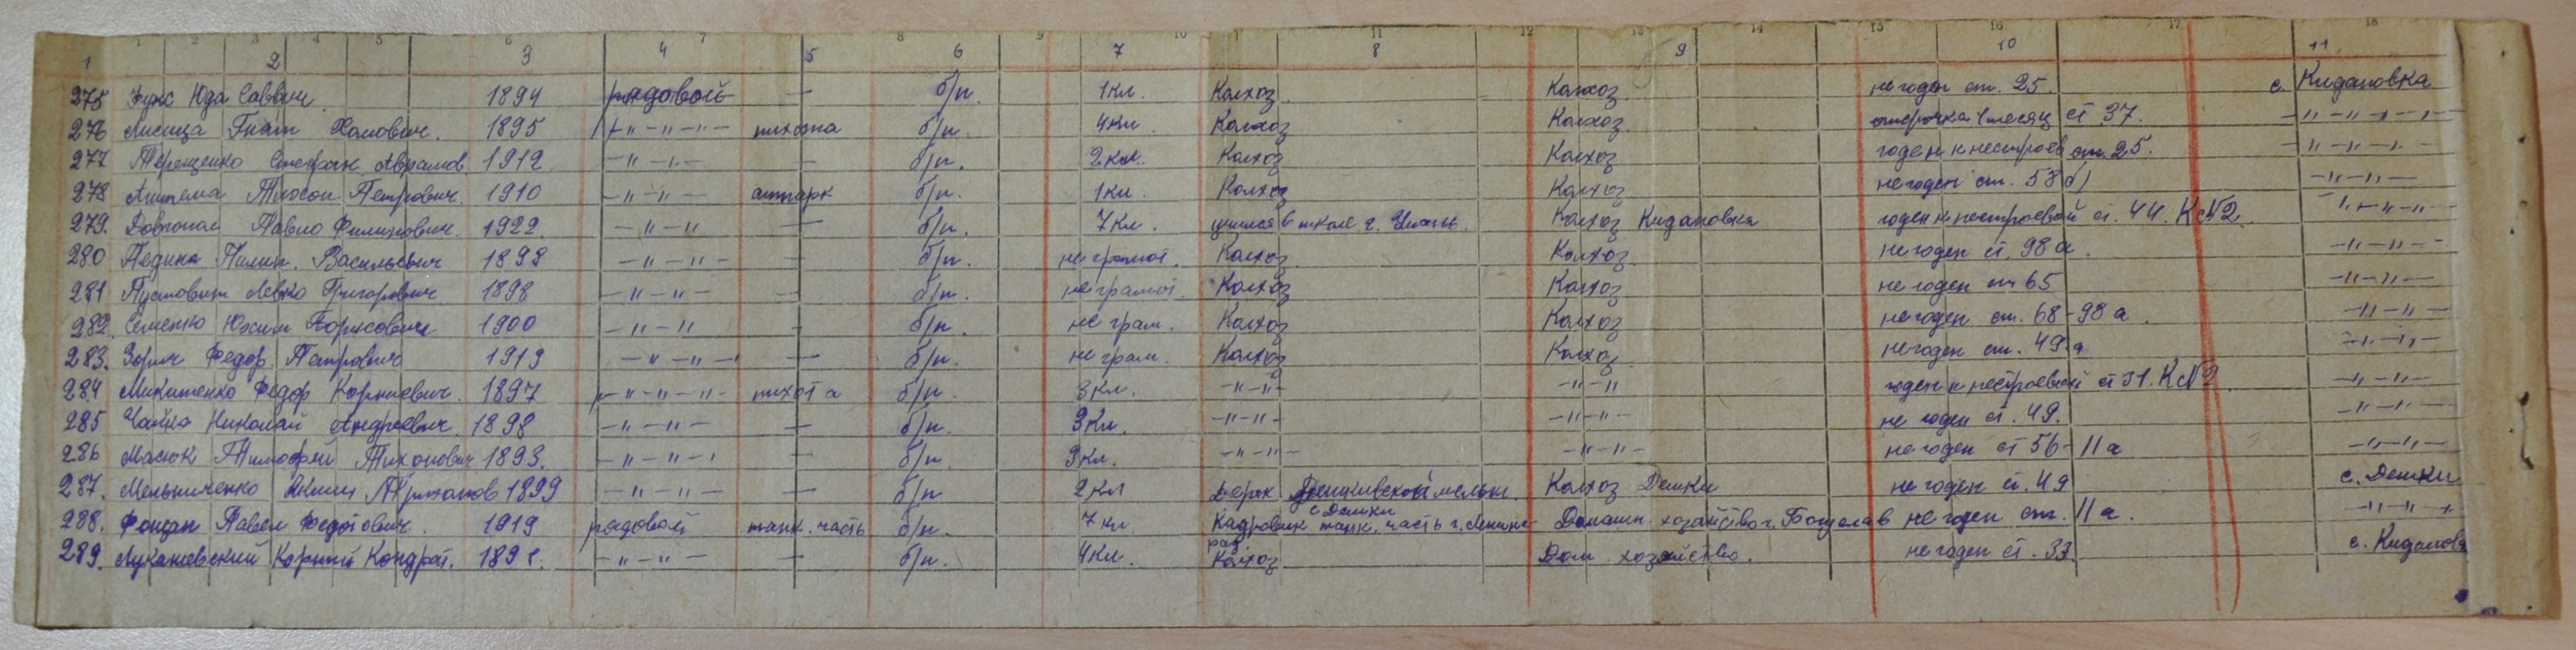 1 2 3 4 5 6 7 8 9 10 11 12 13 14 15 16 17 18
1 2 3 4 5 6 7 8 9 10 11
275 Юда Саввич. 1894 рядовой — б/п. 1 кл. Колхоз. Колхоз. не годен ст. 25. с. Кидановка
276 Лисица Гнат Хомович. 1895 —"—"— пихота б/п. 4 кл. Колхоз Колхоз. отсрочка 1 месяц ст 37. —"—"—"—
277 Терещенко Степан Абрамов. 1912 —"—"— — б/п. 2 кл. Колхоз Колхоз годен к нестроев ст. 25. —"—"—"—
278 Петрович. 1910 —"—"— б/п. 1 кл. Колхоз Колхоз не годен ст. 58 б) —"—"—
279. Довгопол Павло Филипович. 1922 —"—"— — б/п. 7 кл. учился в школе г. Умань. Колхоз Кидановка годен к нестроевой ст. 44. К №2. —"—"—
280 Педика Пилип. Васильевич 1898 —"—"— — б/п. не грамот. Колхоз Колхоз. не годен ст. 98 а. —"—"—
281 Пустовит Левко Григорович 1898 —"—"— — б/п. не грамот. Колхоз Колхоз не годен ст 65 —"—"—
282. Семенко Юхим Борисович 1900 —"—"— — б/п. не грам. Колхоз Колхоз не годен ст. 68-98 а. —"—"—
283. Зорич Федор. Петрович 1919 —"—"— — б/п. не грам. Колхоз Колхоз не годен ст. 49 а —"—"—
284 Микитенко Федор Корниевич. 1897 —"—"— пихота б/п. 3 кл. —"—"— —"—"— годен к нестроевой ст 31. К №2. —"—"—
285 Чайка Николай Андреевич. 1898 —"—"— — б/п. 3 кл. —"—"— —"—"— не годен ст. 49. —"—"—
286 Масюк Тимофей Тихонович 1893. —"—"— — б/п. 3 кл. —"—"— —"—"— не годен ст 56-11а —"—"—
287. Мельниченко Яким 1899 —"—"— — б/п 2 кл мельн. Колхоз Дешки не годен ст. 49 с. Дешки
с Дешки
288. Павел Федотович. 1919 рядовой танк. часть б/п. 7 кл Кадровик танк. часть г. Ленинг- Домашн. хозяйство г. Богуслав не годен ст. 11а. —"—"—
рад.
289. Лукашевский Корний Кондрат. 189 —"—"— — б/п. 4 кл. Колхоз Дом. хозяйство. не годен ст. 33 с. Кидановка